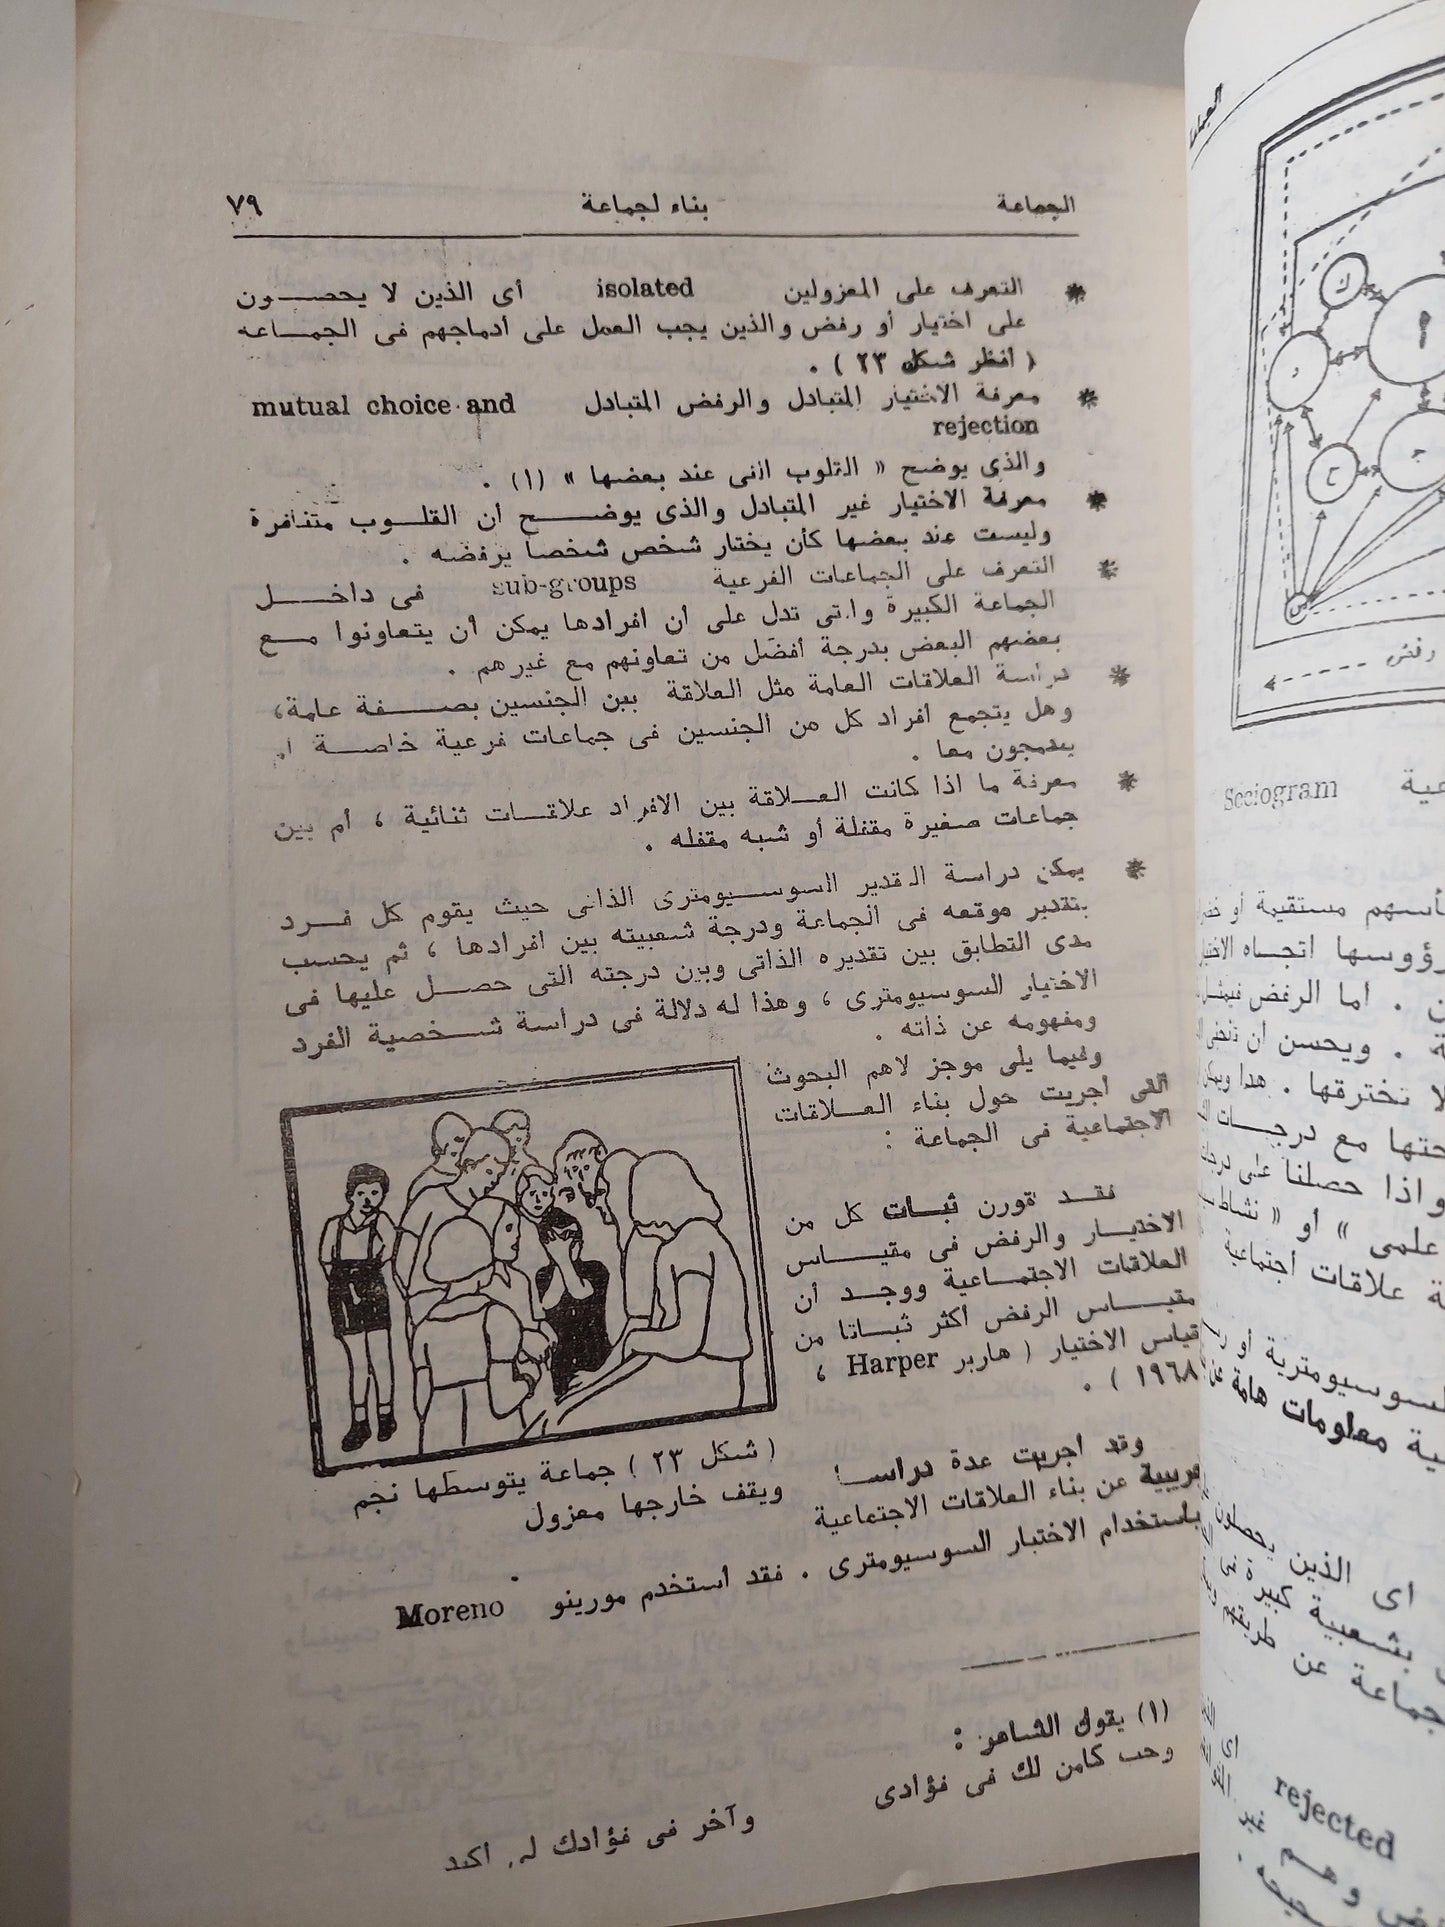 الجماعة بناء لجماعة ٧٩
* التعرف على المعزولين isolated أى الذين لا يحصون
على اختيار أو رفض والذين يجب العمل على أدماجهم فى الجماعه
( أنظر شكل ٢٣ ) .
* معرفة الاختيار المتبادل والرفض المتبادل mutual choice and
rejection
والذى يوضح « القلوب اننى عند بعضها » (١) .
* معرفة الاختيار غير المتبادل والذى يوضح أن القلوب متنافرة
وليست عند بعضها كأن يختار شخص شخصا يرفضه .
* التعرف على الجماعات الفرعية sub-groups فى داخل
الجماعة الكبيرة والتى تدل على أن افرادها يمكن أن يتعاونوا مع
بعضهم البعض بدرجة أفضل من تعاونهم مع غيرهم .
* دراسة العلاقات العامة مثل العلاقة بين الجنسين بصفة عامة،
وهل يتجمع أفراد كل من الجنسين فى جماعات فرعية خاصة
يندمجون معا .
* معرفة ما اذا كانت العلاقة بين الافراد علاقات ثنائية ، أم بين
جماعات صغيرة مقفلة أو شبه مقفله .
* يمكن دراسة التقدير السوسيومترى الذاتى حيث يقوم كل فرد
بتقدير موقعه فى الجماعة ودرجة شعبيته بين افرادها ، ثم يحسب
مدى التطابق بين تقديره الذاتى وبين درجته التى حصل عليها فى
الاختيار السوسيومترى ، وهذا له دلالة فى دراسة شخصية الفرد
ومفهومه عن ذاته .
وفيما يلى موجز لاهم البحوث
التى أجريت حول بناء العلاقات
الاجتماعية فى الجماعة :
فقد قورن ثبات كل من
الاختيار والرفض فى مقياس
العلاقات الاجتماعية ووجد أن
مقياس الرفض أكثر ثباتا من
قياس الاختيار ( هاربر Harper ،
١٩٦٨ ) .
( شكل ٢٣ ) جماعة يتوسطها نجم
ويقف خارجها معزول
وقد أجريت عدة
عن بناء العلاقات الاجتماعية
باستخدام الاختبار السوسيومترى . فقد أستخدم مورينو Moreno
(١) يقول الشاعر :
وحب كامن لك فى فؤادى
وآخر فى فؤادك لى أكيد
رفض
Sociogram
مستقيمة أو
رؤوسها اتجاه
أما الرفض فيمثل
ويحسن ان
تخترقها . هذا ويمكن
مع درجات
واذا حصلنا على
علمى » أو « نشاط
علاقات أجتماعية
معلومات هامة عن
اى الذين يحصلون
بشعبية كبيرة فى
جماعة عن طريقهم
rejected
وهم غير